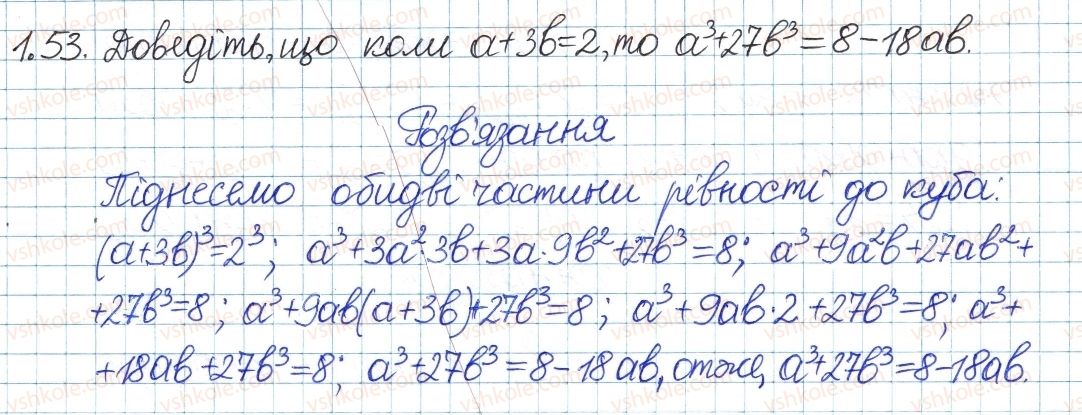 1.53. Доведіть, що коли a+3b=2, то a³+27b³=8-18ab.
Розв'язання
Піднесемо обидві частини рівності до куба:
(a+3b)³=2³; a³+3a²·3b+3a·9b²+27b³=8; a³+9a²b+27ab²+
+27b³=8; a³+9ab(a+3b)+27b³=8; a³+9ab·2+27b³=8; a³+
+18ab+27b³=8; a³+27b³=8-18ab, отже, a³+27b³=8-18ab.